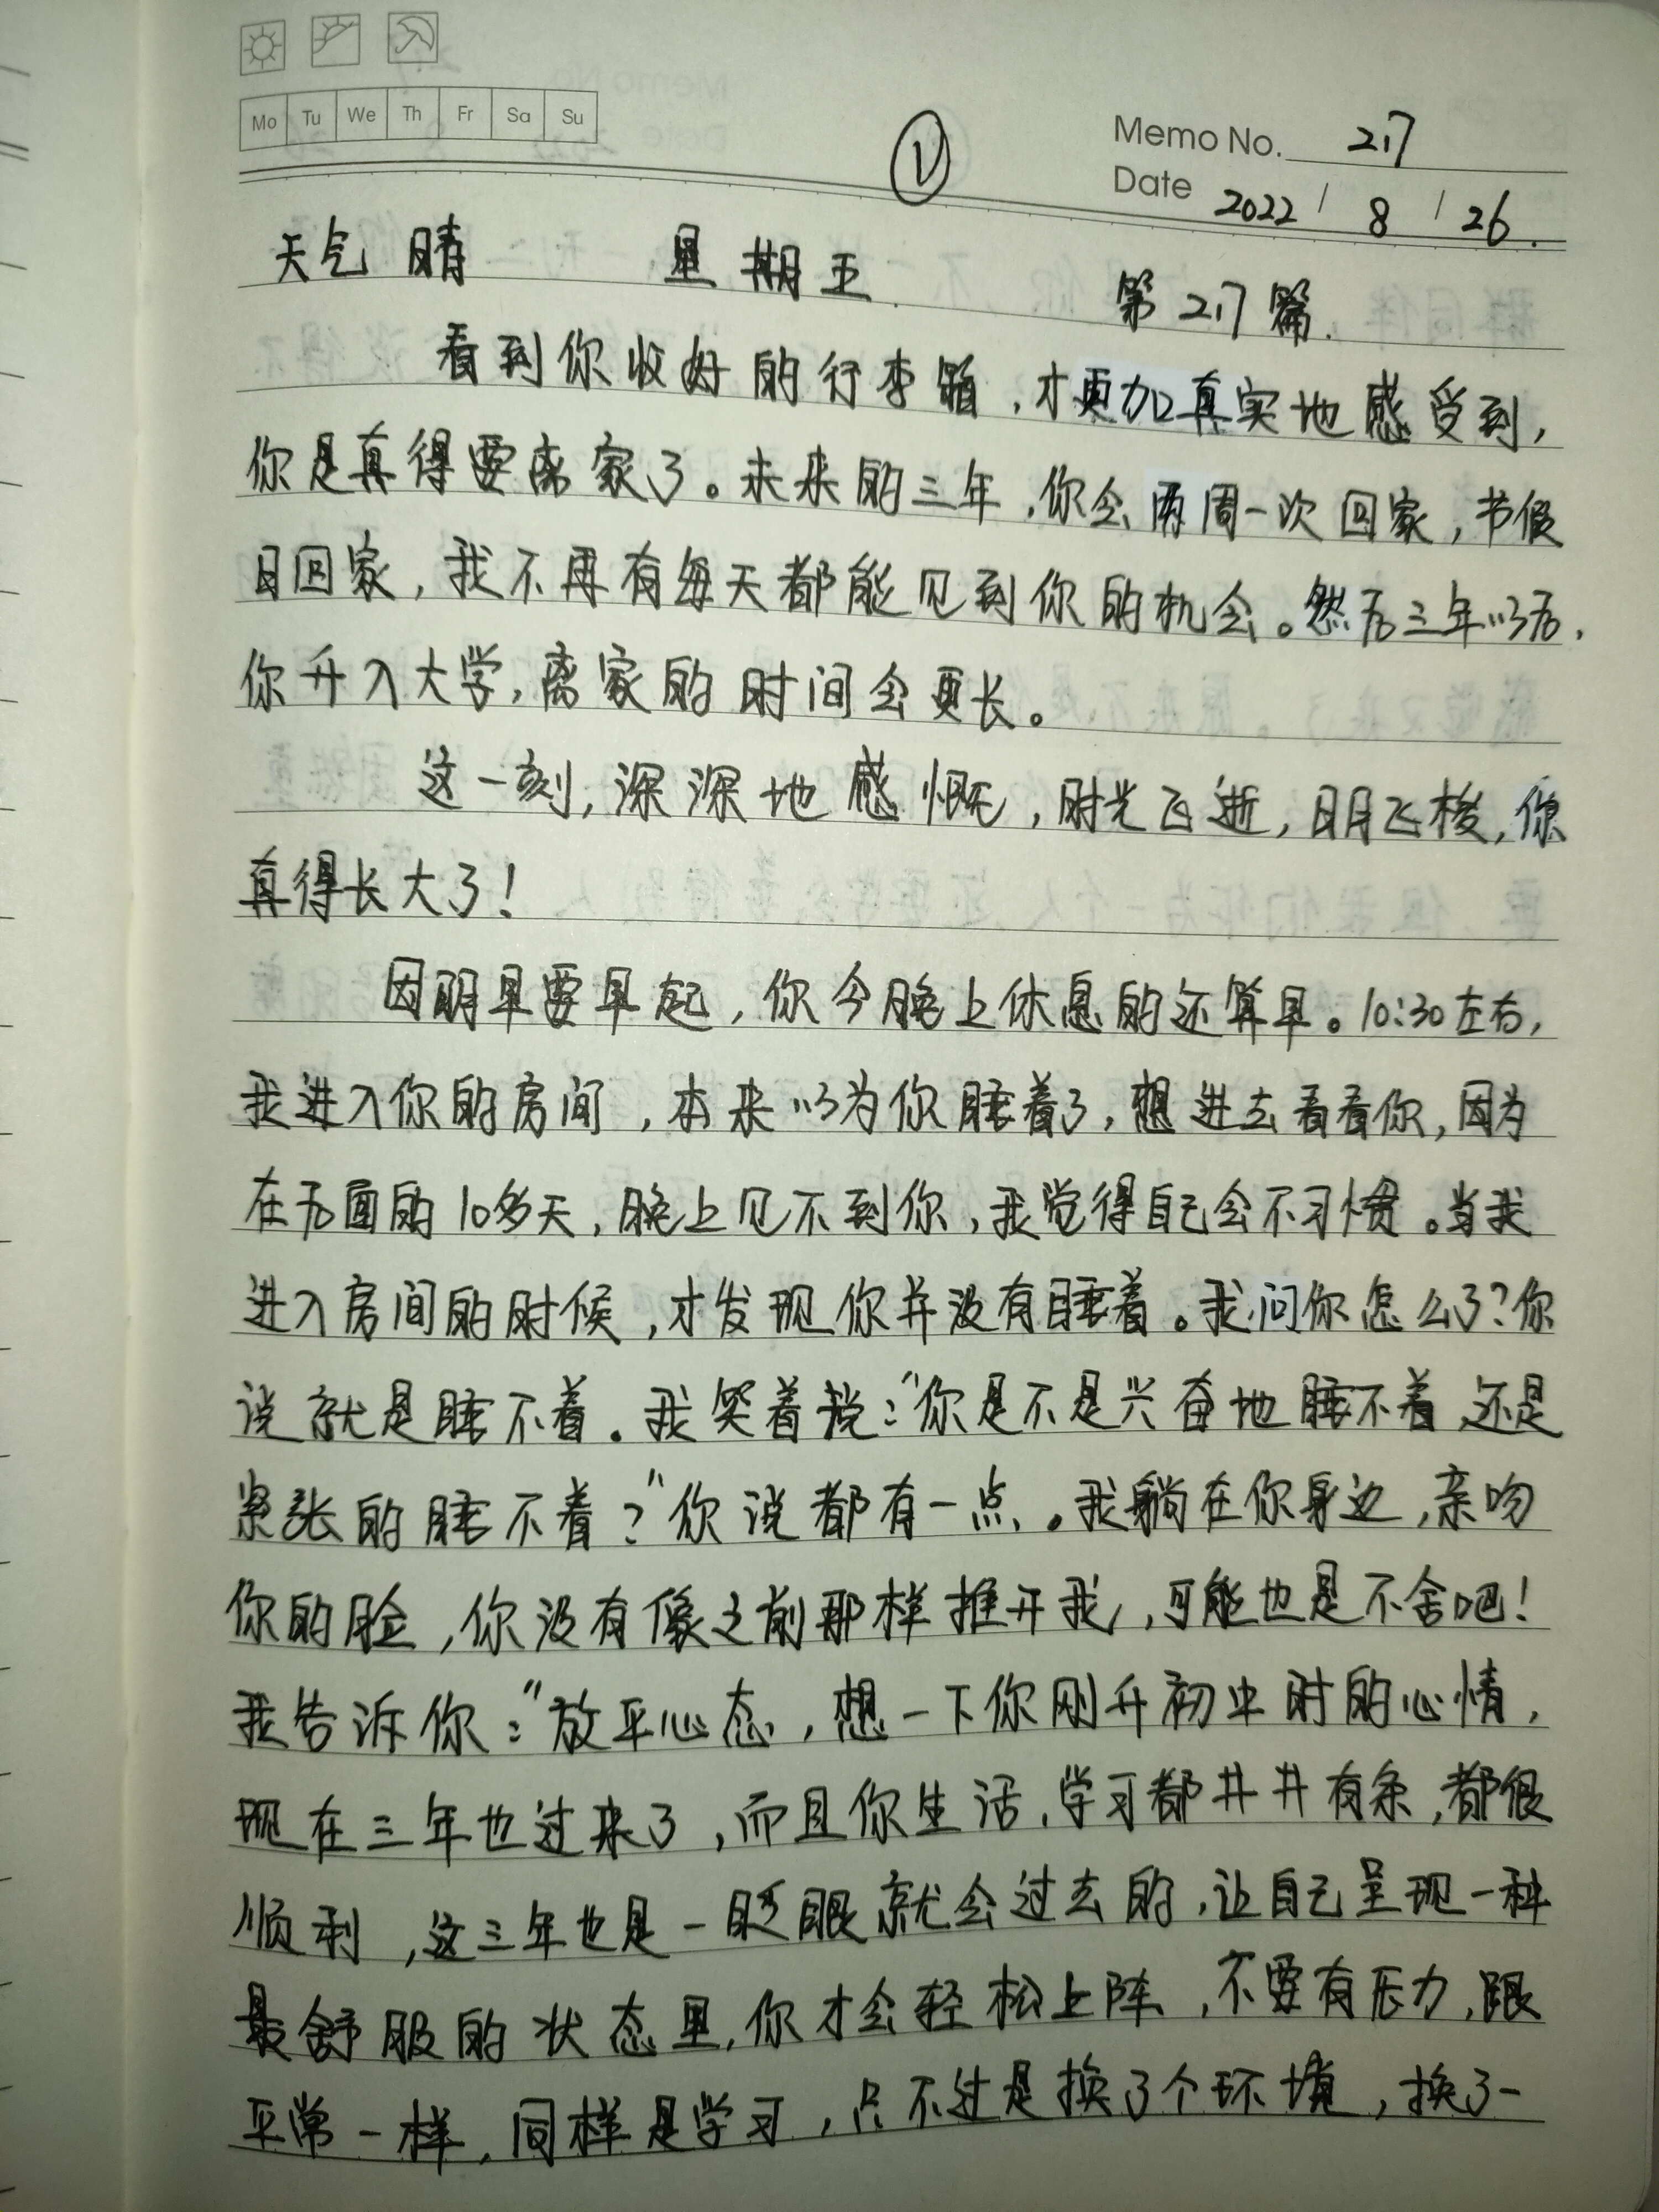 Mo Tu We Th Fr Sa Su
①
Memo No. 217
Date 2022 / 8 / 26.
天气 晴 星期五 第217篇.
看到你收好的行李箱,才更加真实地感受到,
你是真得要离家了。未来的三年,你会两周一次回家,节假
日回家,我不再有每天都能见到你的机会。然后三年以后,
你升入大学,离家的时间会更长。
这一刻,深深地感慨,时光飞逝,日月飞梭,你
真得长大了!
因明早要早起,你今晚上休息的还算早。10:30左右,
我进入你的房间,本来以为你睡着了,想进去看看你,因为
在后面的10多天,晚上见不到你,我觉得自己会不习惯。当我
进入房间的时候,才发现你并没有睡着。我问你怎么了?你
说就是睡不着。我笑着说:“你是不是兴奋地睡不着 还是
紧张的睡不着?”你说都有一点。我躺在你身边,亲吻
你的脸,你没有像之前那样推开我,可能也是不舍吧!
我告诉你:“放平心态,想一下你刚升初中时的心情,
现在三年也过来了,而且你生活,学习都井井有条,都很
顺利,这三年也是一眨眼就会过去的,让自己呈现一种
最舒服的状态里,你才会轻松上阵,不要有压力,跟
平常一样,同样是学习,只不过是换了个环境,换了一